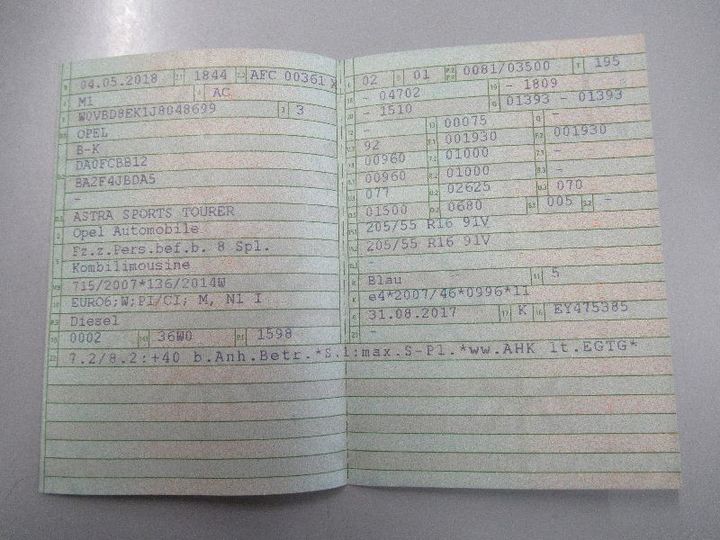 04.05.2018 1844 AFC 00361
M1 AC
W0VBD8EK1J8048699 3
OPEL
B-K
DA0FCBB12
BA2F4JBDA5
-
ASTRA SPORTS TOURER
Opel Automobile
Fz.z.Pers.bef.b. 8 Spl.
Kombilimousine
715/2007*136/2014W
EURO6;W;PI/CI; M, N1 I
Diesel
0002 36W0 1598
02 01 0081/03500 195
- 04702 - 1809
- 1510 01393 - 01393
- 00075 -
92 001930 001930
00960 01000 -
00960 01000 -
077 02625 070
01500 0680 005 -
205/55 R16 91V
205/55 R16 91V
Blau 5
e4*2007/46*0996*11
31.08.2017 K EY475385
-
7.2/8.2:+40 b.Anh.Betr.*S.1:max.S-Pl.*ww.AHK lt.EGTG*